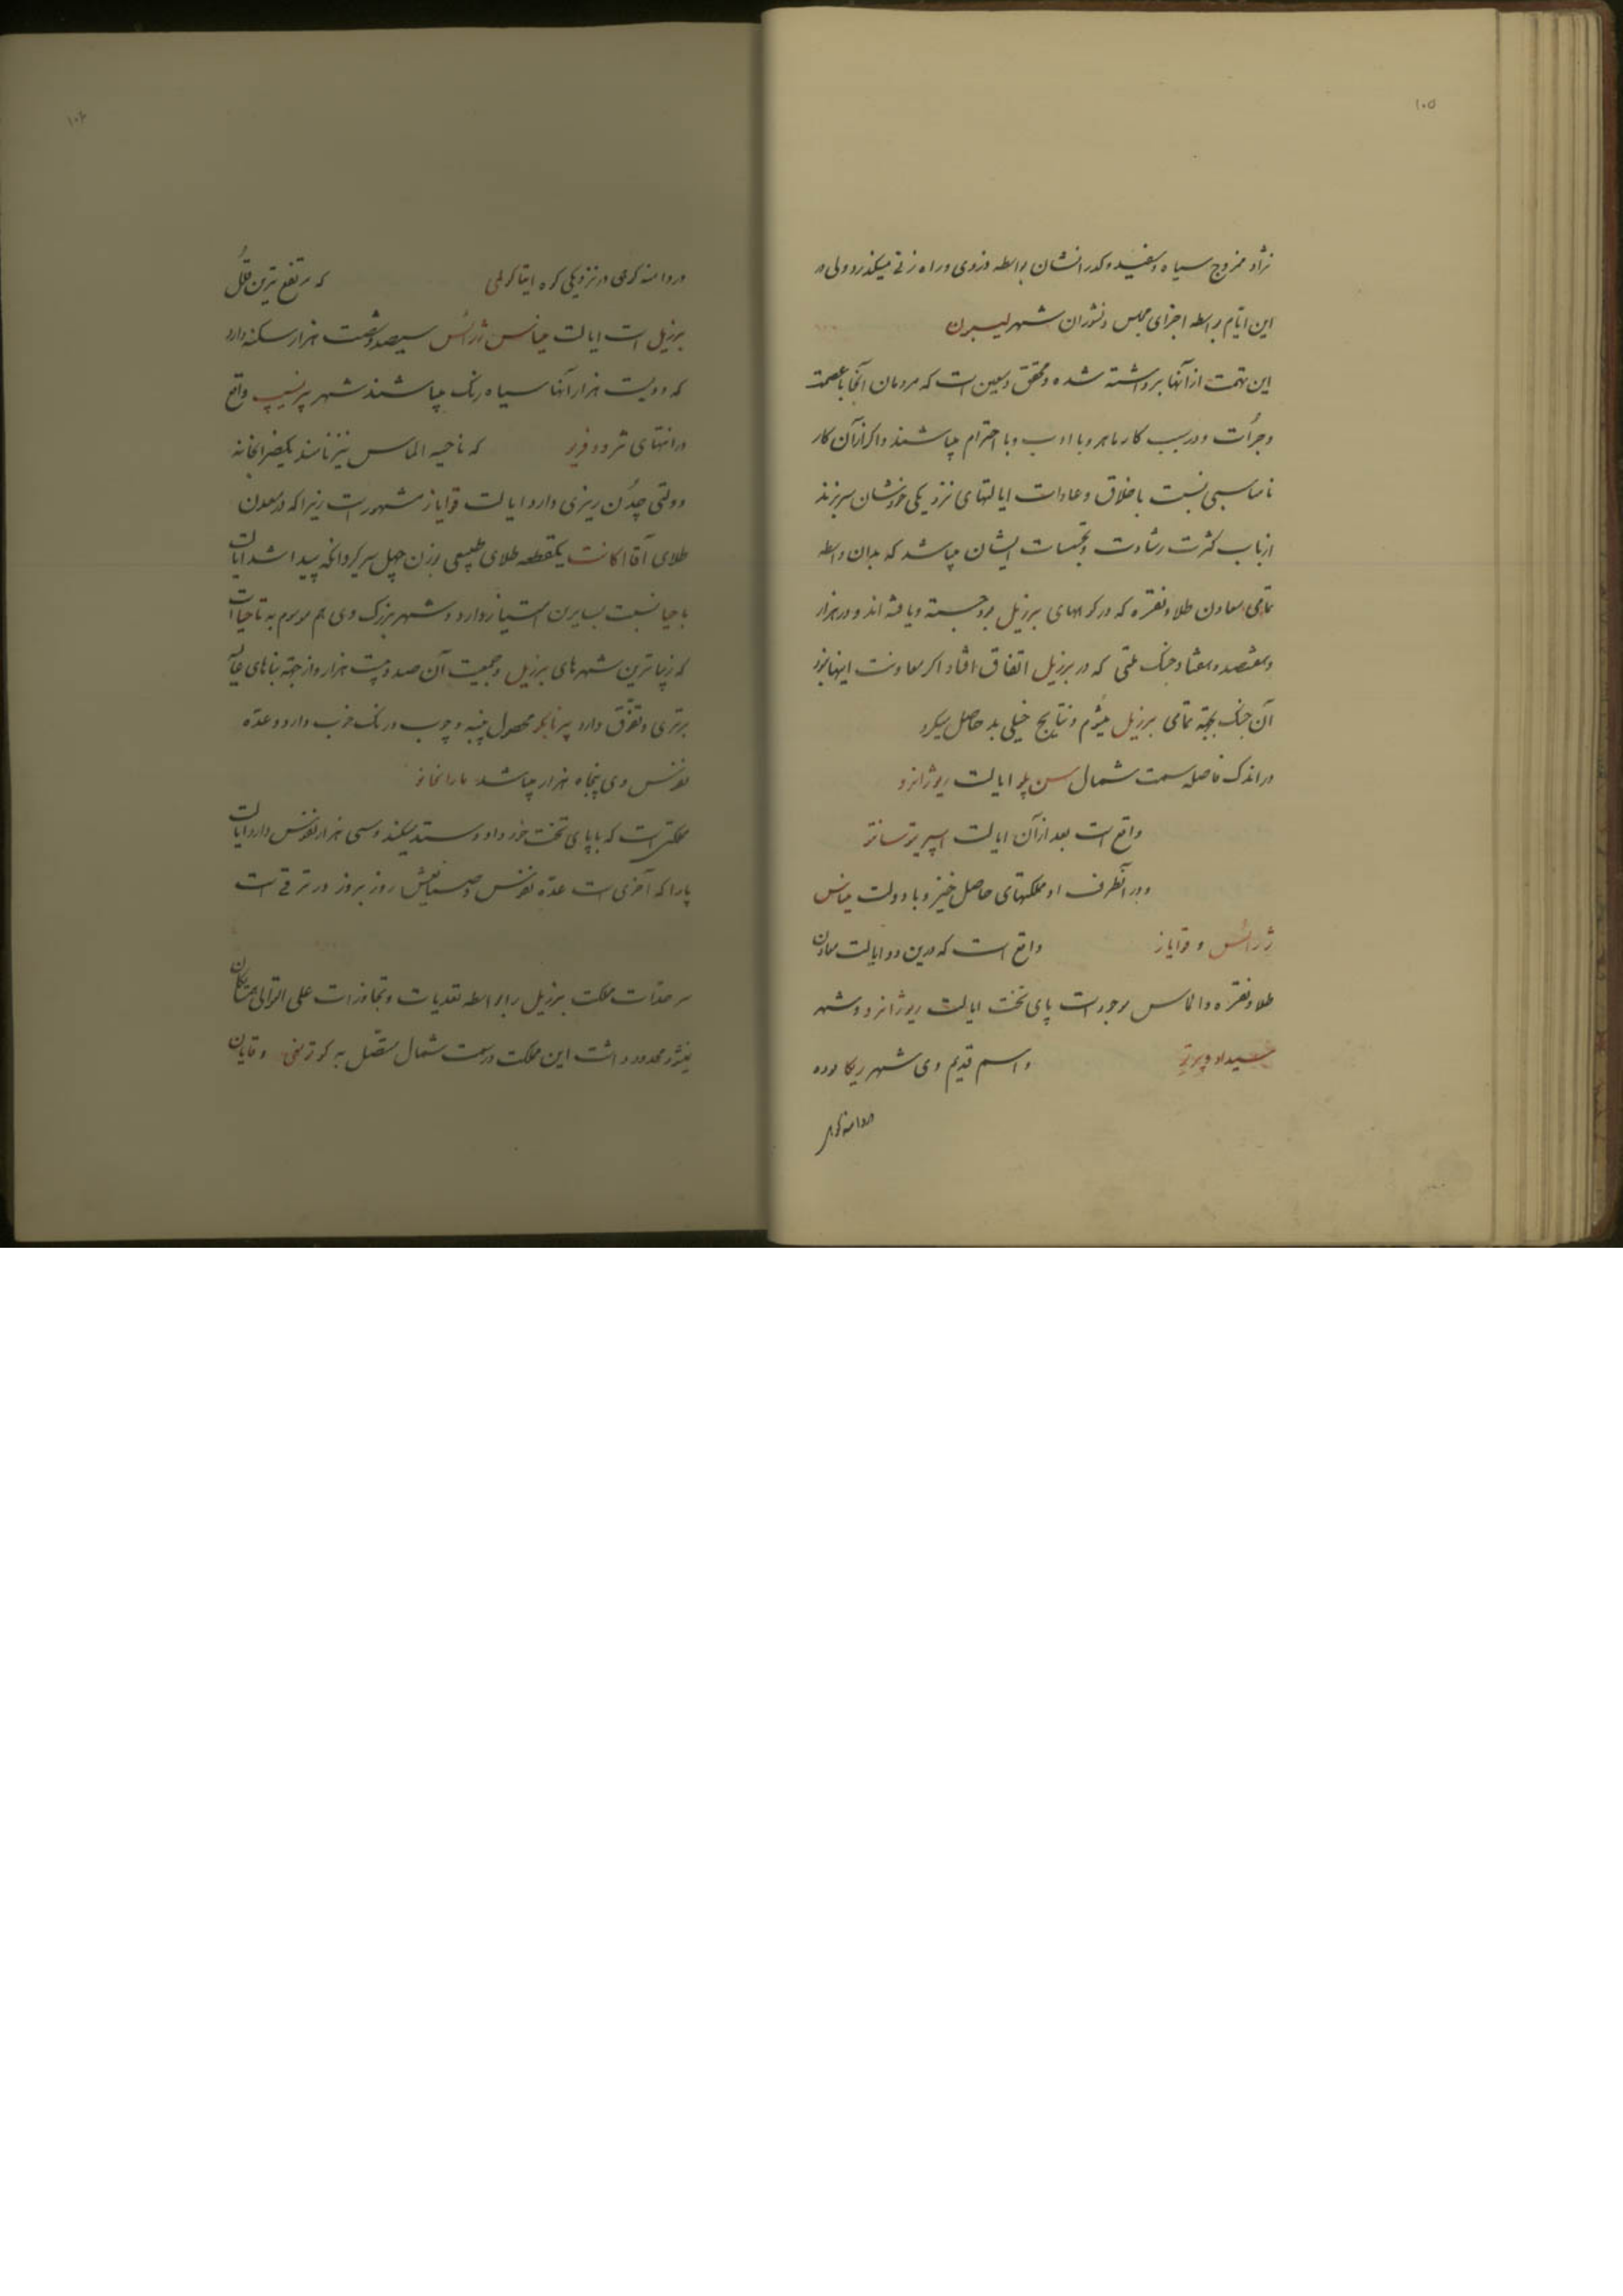 ۱۰۵
نژاد ممزوج سیاه و سفید و گذرانشان بواسطه دزدی و راه زنی میگذرد ولی در
این ایام بواسطه اجزای مجلس دانشوران شهر لیسبون
این تهمت از آنها برداشته شده و محقق و معین است که مردمان آنجا با عصمت
و جرأت و در سبب کار ماهر و با ادب و با احترام میباشند و اگر از آن کار
نامناسبی نسبت باخلاق و عادات ایالتهای نزدیکی خودشان سر بزند
از باب کثرت رشادت و تجسسات ایشان میباشد که بدان واسطه
تمامی معادن طلا و نقره که در کوههای برزیل بود جسته و یافته اند و در هزار
و هفتصد و هفتاد جنگ ملتی که در برزیل اتفاق افتاد اگر معاونت اینها نبود
آن جنگ بجهة تمامی برزیل میشوم و نتایج خیلی بد حاصل میکرد
در اندک فاصله سمت شمال سن پلو ایالت ریوژانرو
واقع است بعد از آن ایالت اسپریتو سانتو
و در آنطرف او مملکتهای حاصل خیز و با دولت میانس
ژرائس و قوایاز واقع است که درین دو ایالت معادن
طلا و نقره و الماس موجود است پای تخت ایالت ریوژانرو و شهر
واسم قدیم وی شهر ریکا بوده
در دامنه کوهی
۱۰۶
در دامنه کوهی در نزدیکی کوه ایتاکولمی که مرتفع ترین قلل
برزیل است ایالت میانس ژرائس سیصد و شصت هزار سکنه دارد
که دویست هزار آنها سیاه رنگ میباشند شهر پرنسیپ واقع
در انتهای سرودوفریو که ناحیه الماس نیز نامند یکضرابخانه
دولتی چدن ریزی دارد ایالت قوایاز مشهور است زیرا که در معدن
طلای آقا اکانت یکقطعه طلای طبیعی بوزن چهل سیر کروانکه پیدا شد ایالت
باحیا نسبت بسایرین امتیاز دارد و شهر بزرگ وی هم موسوم به باحیا است
که زیباترین شهرهای برزیل و جمعیت آن صد و بیست هزار و از جهة بناهای عالیه
برتری و تفوق دارد پرنامبو محصول پنبه و چوب و رنگ خوب دارد و عده
نفوس وی پنجاه هزار میباشد مارانخائو
مملکتی است که با پای تخت خود داد و ستد میکند و سی هزار نفوس دارد ایالت
پارا که آخری است عده نفوس و صنایعش روز بروز در ترقی است
سرحدات مملکت برزیل را بواسطه تعدیات و تجاوزات علی التوالی
نمیشود محدود داشت این مملکت در سمت شمال متصل به کوتزیفی و قایان